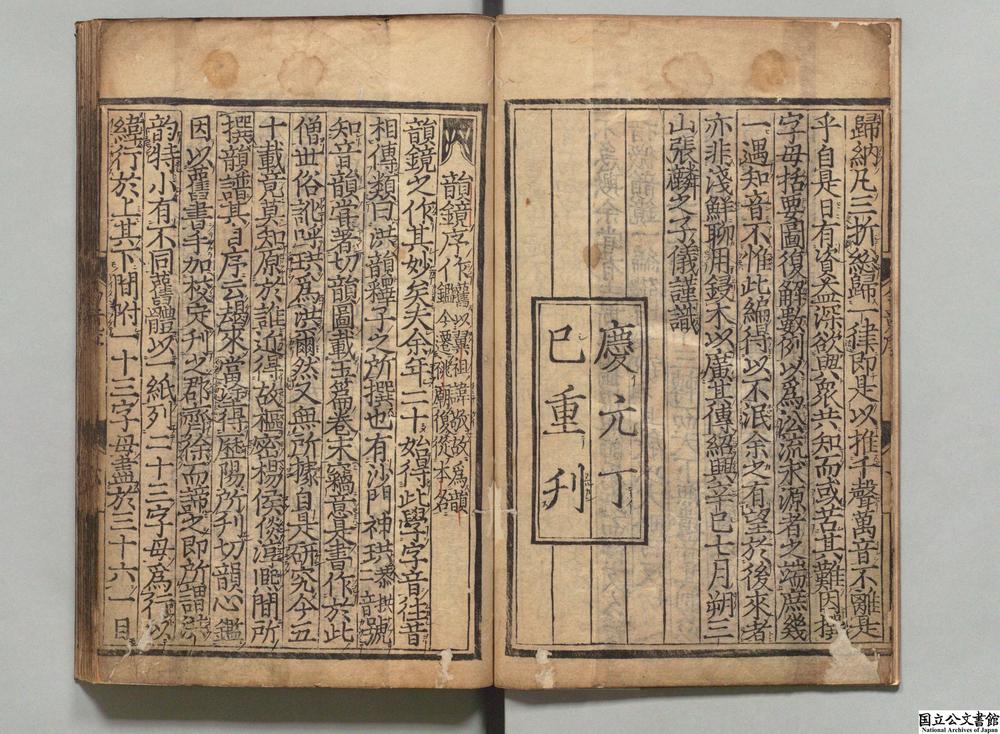 歸納凡三折總歸一律即是以推千聲萬音不離是
乎自是日有資益深欲與衆共知而或苦其難因撰
字母括要圖復解數例以爲㳂流求源者之端庶幾
一遇知音不惟此編得以不泯余之有望於後來者
亦非淺鮮聊用鋟木以廣其傳紹興辛巳七月朔三
山張麟之子儀謹識
慶元丁
巳重刋
韻鏡序作 舊以翼祖諱敬故爲韻
鑑今遷祧廟復從本名
韻鏡之作其妙矣夫余年二十始得此學字音往昔
相傳類曰洪韻釋子之所撰也有沙門神珙 恭拱二音 號
知音韻嘗著切韻圖載玉篇卷末竊意是書作於此
僧世俗訛呼珙爲洪爾然又無所據自是研究今五
十載竟莫知原於誰近得故樞密楊侯倓淳熈間所
撰韻譜其自序云朅來當塗得歷陽所刋切韻心鑑
因以舊書手加校定刋之郡齋徐而諦之即所謂洪
韵特小有不同舊體以一紙列二十三字母爲行以
緯行於上其下間附一十三字母盡於三十六一目
国立公文書館
National Archives of Japan